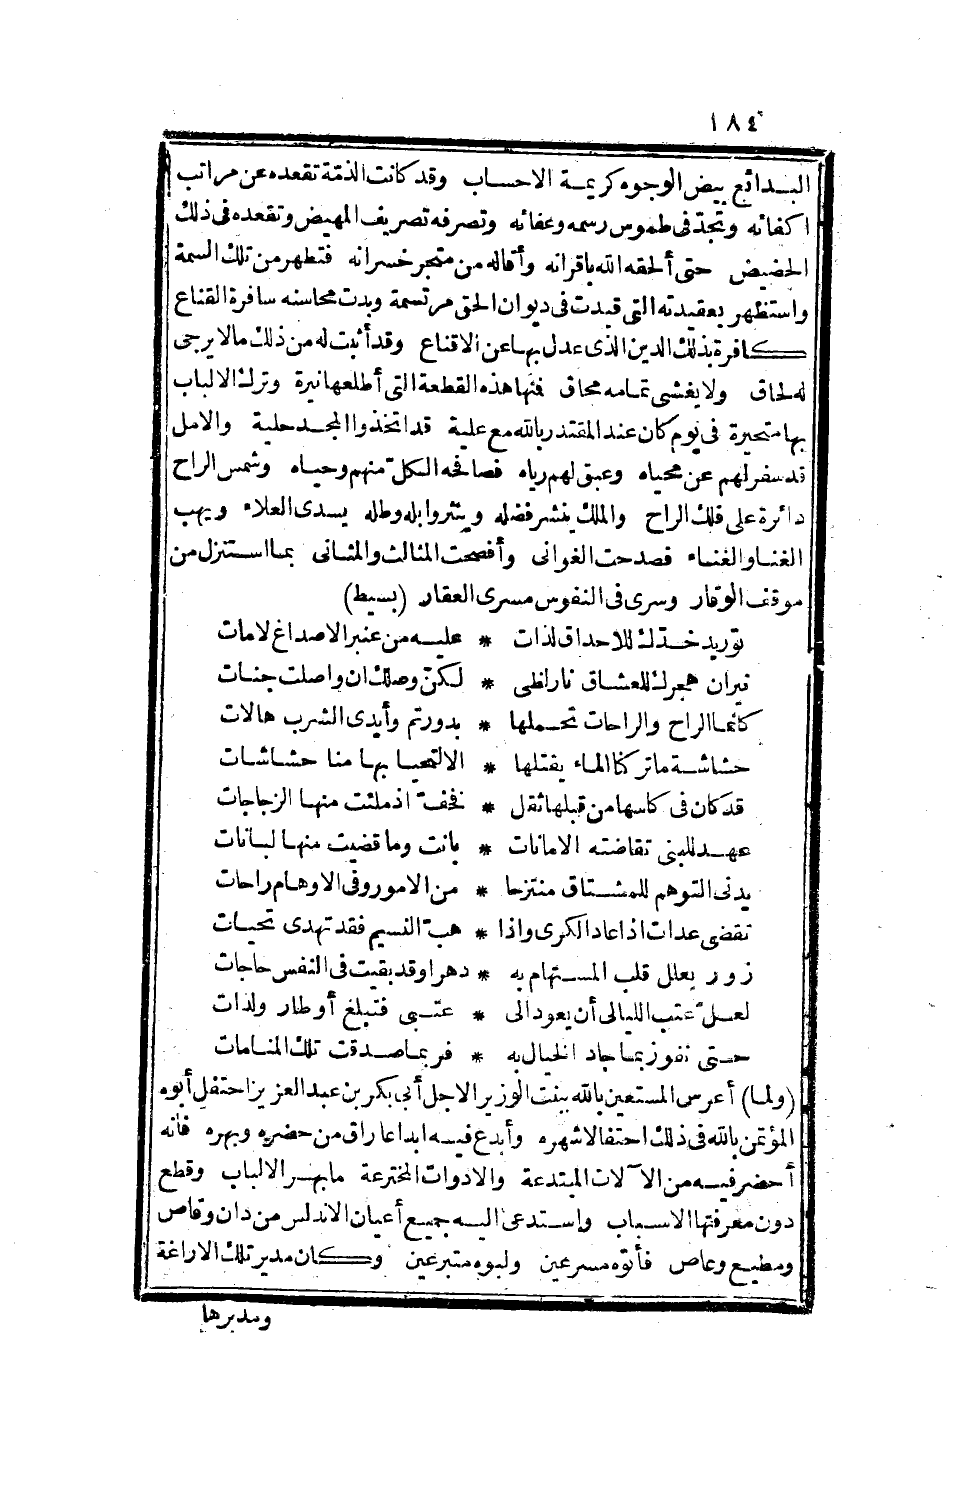 ١٨٤
البدائع بيض الوجوه كريمة الاحساب وقد كانت الذمّة تقعده عن مراتب
اكفائه وتجدّ فى طموس رسمه وعفائه وتصرفه تصريف المهيض وتقعده فى ذلك
الحضيض حتى ألحقه الله باقرانه وأقاله من متجر خسرانه فتطهر من تلك السمة
واستظهر بعقيدته التى قيدت فى ديوان الحق مرتسمة وبدت محاسنه سافرة القناع
كافرة بذلك الدين الذى عدل بها عن الاقناع وقد أثبت له من ذلك مالا يرجى
له لحاق ولا يغشى تمامه محاق فمنها هذه القطعة التى أطلعها نيرة وترك الالباب
بها متحيرة فى يوم كان عند المقتدر بالله مع علية قد اتخذوا المجد حلية والامل
قد سفر لهم عن محياه وعبق لهم رياه فصافحه الكل منهم وحياه وشمس الراح
دائرة على فلك الراح والملك ينشر فضله وينثر وابله وطله يسدى العلاء ويهب
الغنا والغناء فصدحت الغوانى وأفصحت المثالث والمثانى بما استنزل من
موقف الوقار وسرى فى النفوس مسرى العقار (بسيط)
توريد خدّك للاحداق لذات * عليه من عنبر الاصداغ لامات
نيران هجرك للعشاق نار لظى * لكنّ وصلك ان واصلت جنات
كأنما الراح والراحات تحملها * بدور تم وأيدى الشرب هالات
حشاشة ما تركنا الماء يقتلها * الا لتحيا بها منا حشاشات
قد كان فى كاسها من قبلها ثقل * فخفّ اذ ملئت منها الزجاجات
عهد للبنى تقاضته الامانات * بانت وما قضيت منها لبانات
يدنى التوهم للمشتاق منتزحا * من الامور وفى الاوهام راحات
تقضى عدات اذا عاد الكرى واذا * هبّ النسيم فقد تهدى تحيات
زور يعلل قلب المستهام به * دهرا وقد بقيت فى النفس حاجات
لعلّ عتب الليالى أن يعود الى * عتبى فتبلغ أوطار ولذات
حتى نفوز بما جاد الخيال به * فربما صدقت تلك المنامات
(ولما) أعرس المستعين بالله ببنت الوزير الاجل أبى بكر بن عبد العزيز احتفل أبوه
المؤتمن بالله فى ذلك احتفالا شهره وأبدع فيه ابداعا راق من حضره وبهره فانه
أحضر فيه من الآلات المبتدعة والادوات المخترعة ما بهر الالباب وقطع
دون معرفتها الاسباب واستدعى اليه جميع أعيان الاندلس من دان وقاص
ومطيع وعاص فأتوه مسرعين ولبوه متبرعين وكان مدير تلك الاراغة
ومدبرها